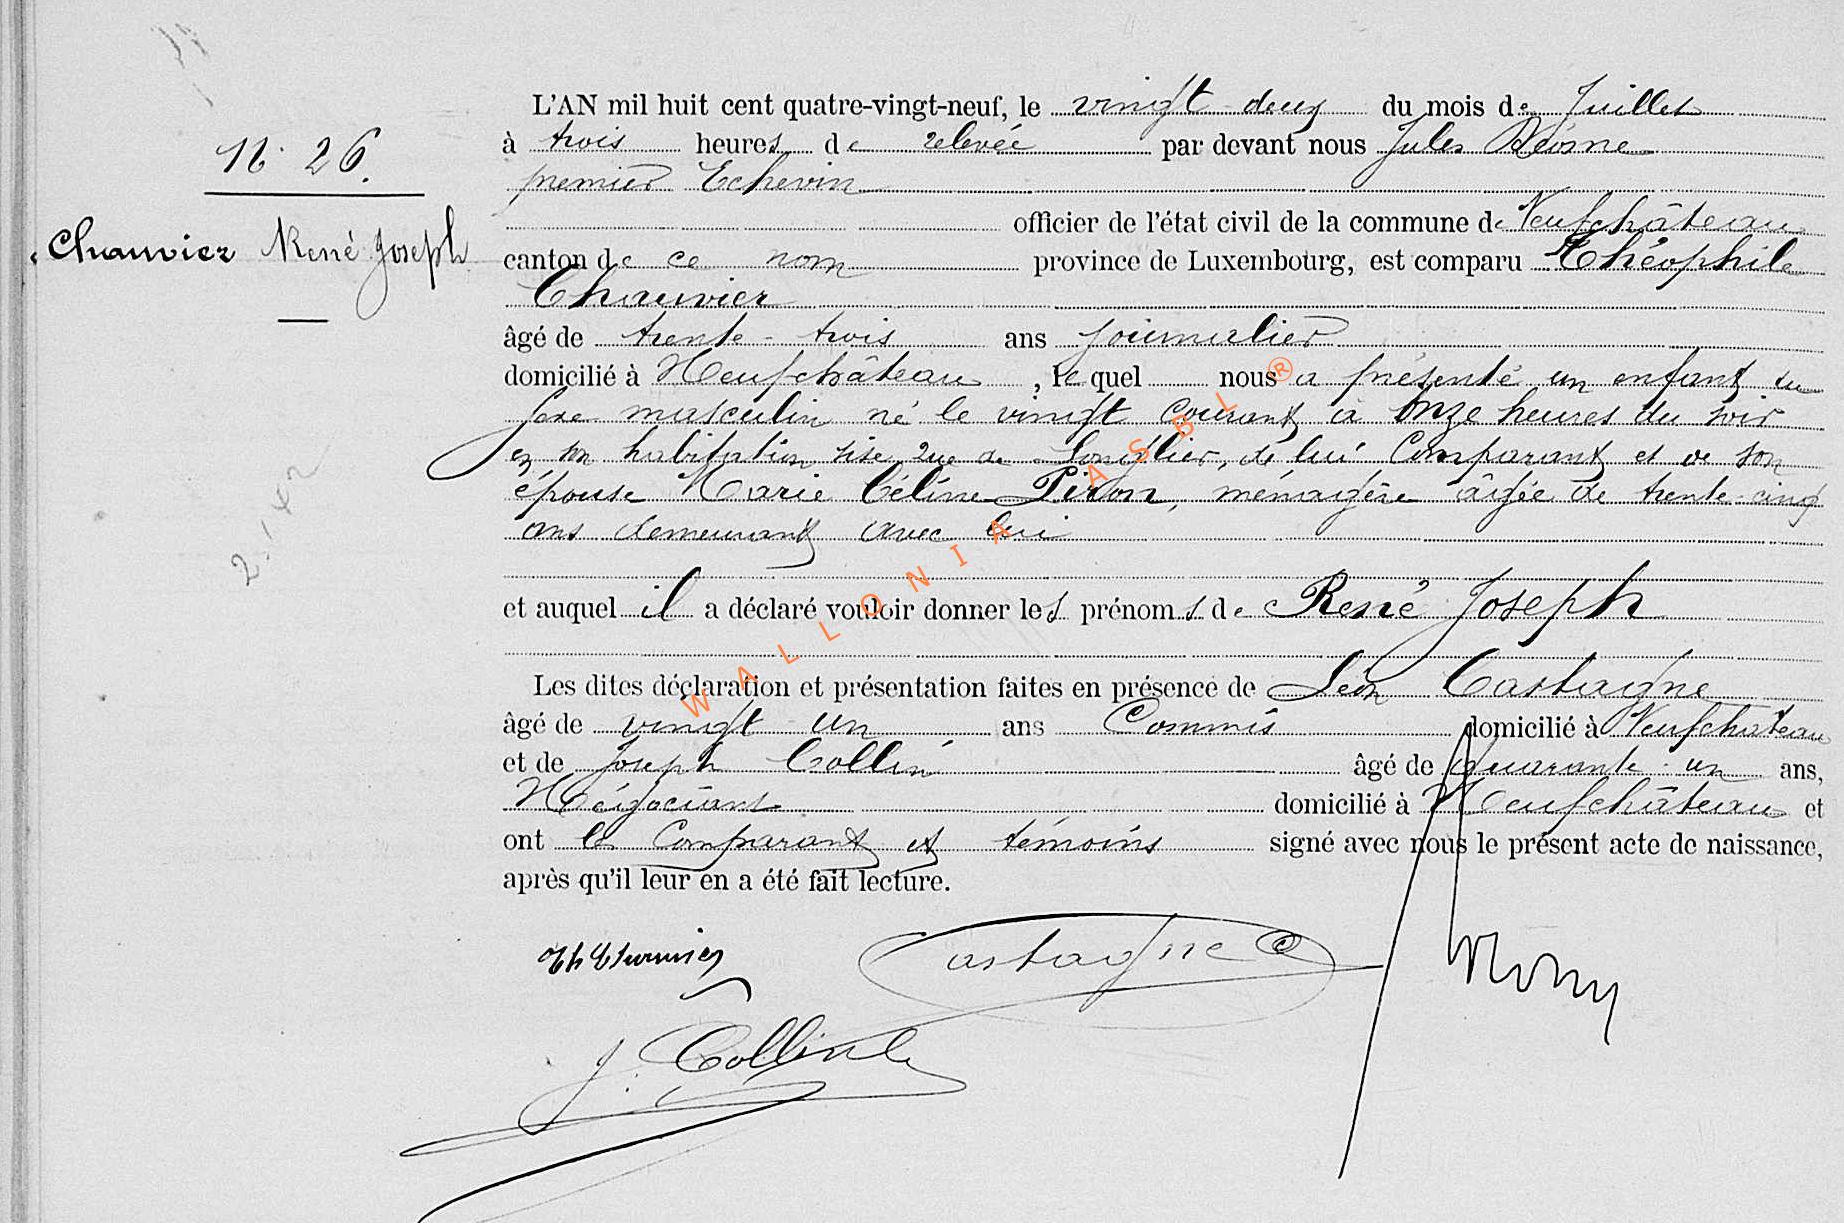 N. 26.
Chauvier René Joseph
L'AN mil huit cent quatre-vingt-neuf, le vingt deux du mois de Juillet
à trois heures de relevée par devant nous Jules
premier Echevin
officier de l'état civil de la commune de Neufchâteau
canton de ce nom province de Luxembourg, est comparu Théophile
Chauvier
âgé de trente-trois ans journalier
domicilié à Neufchâteau, lequel nous a présenté un enfant du
sexe masculin né le vingt courant à onze heures du soir
en son habitation sise rue de Longlier, de lui Comparant et de son
épouse Marie Céline Pirson, ménagère âgée de trente-cinq
ans demeurant avec lui
et auquel il a déclaré vouloir donner les prénoms de René Joseph
Les dites déclaration et présentation faites en présence de Léon Castaigne
âgé de vingt un ans Commis domicilié à Neufchateau
et de Joseph Collin âgé de quarante-un ans,
Négociant domicilié à Neufchâteau et
ont les Comparant et témoins signé avec nous le présent acte de naissance,
après qu'il leur en a été fait lecture.
Th Chauvier
Castagne
J. Collin
2.142
WALLONIA ASBL ®